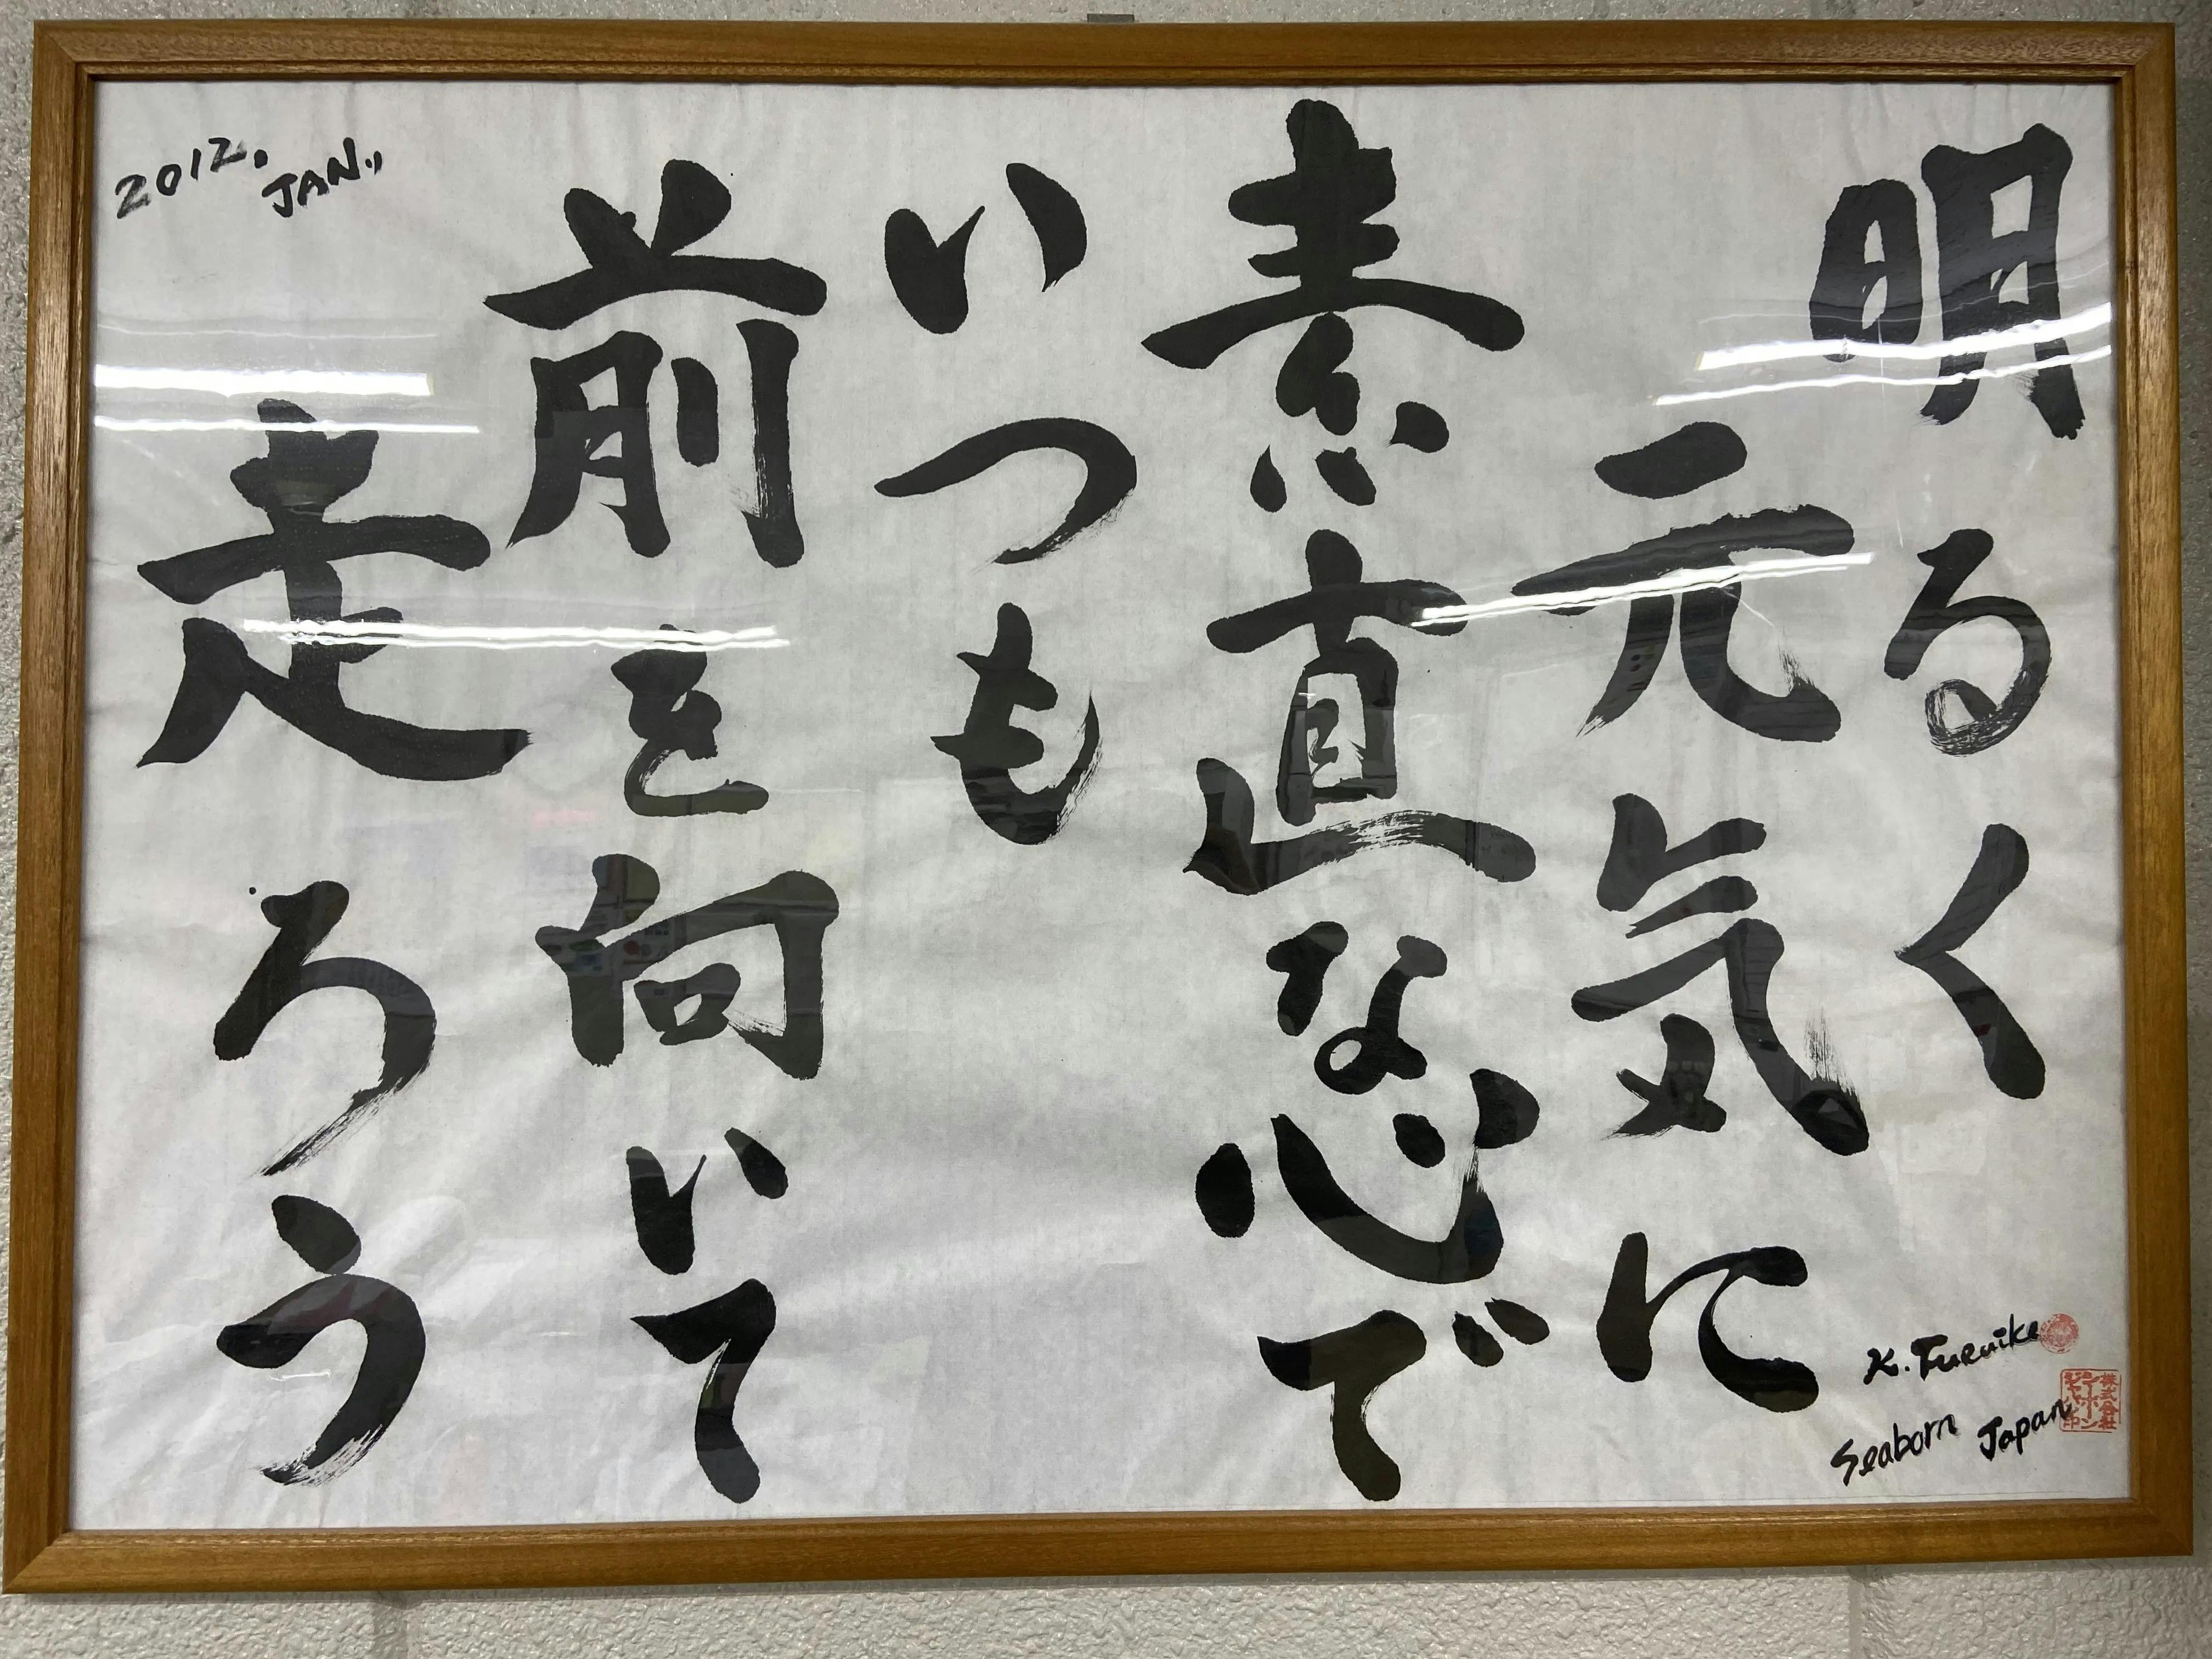 明るく
元気に
素直な心で
いつも
前を向いて
走ろう
2012. JAN.,
Seaborn Japan
株式会社
シーボン
ジャパン印